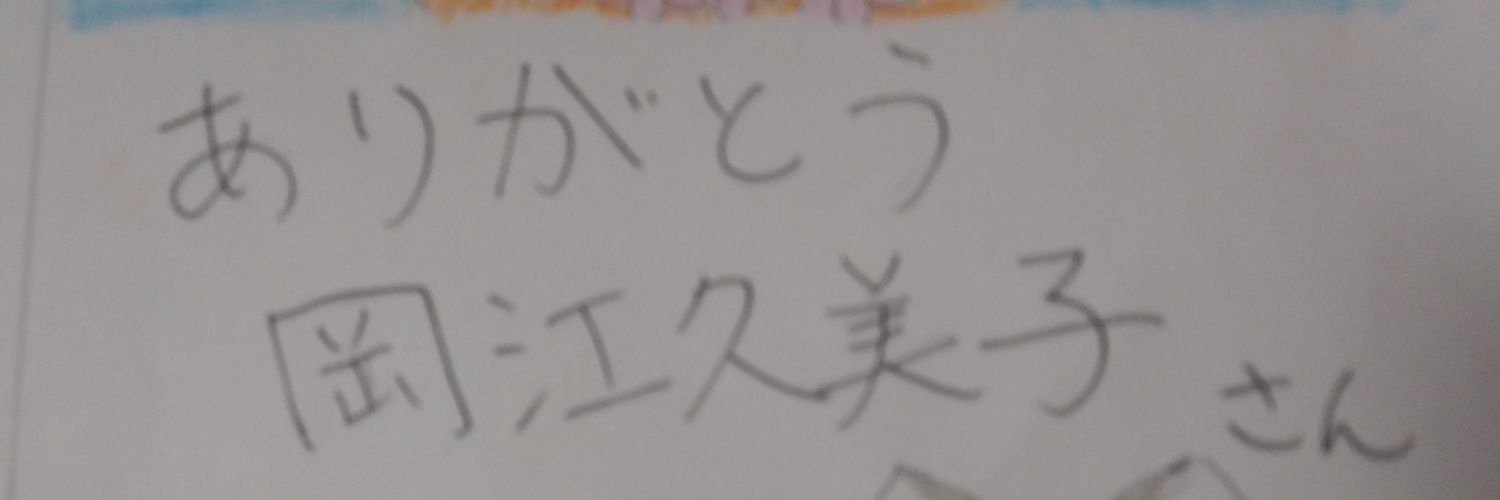 ありがとう
岡江久美子さん